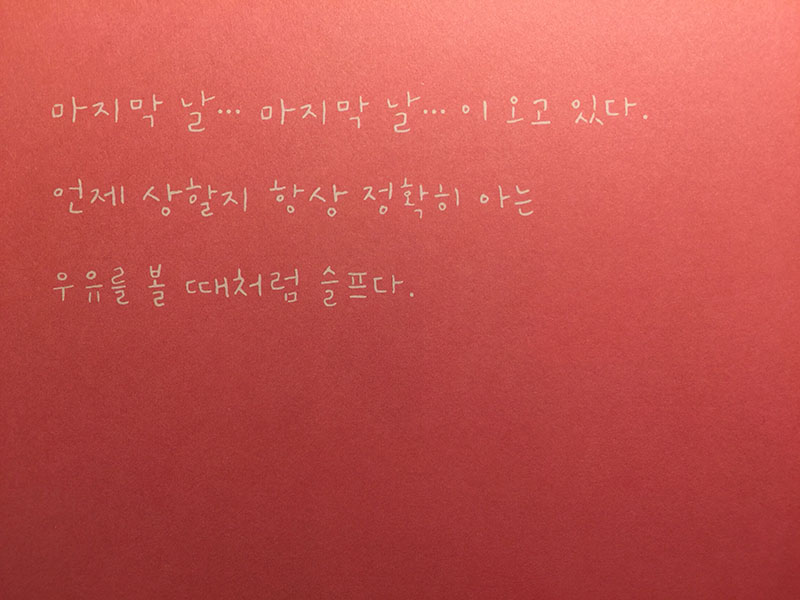 마지막 날… 마지막 날… 이 오고 있다.
언제 상할지 항상 정확히 아는
우유를 볼 때처럼 슬프다.